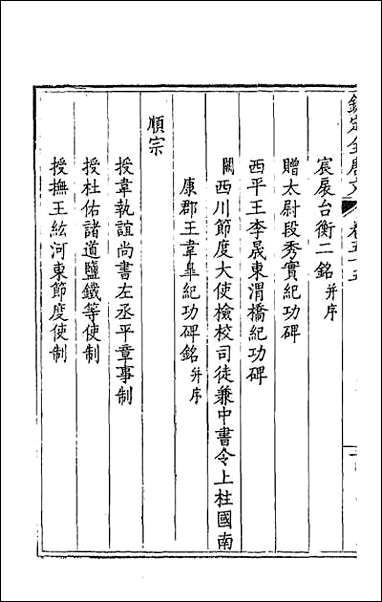 欽定全唐文 卷五十五
宸扆台衡二銘并序
贈太尉段秀實紀功碑
西平王李晟東渭橋紀功碑
闕西川節度大使檢校司徒兼中書令上柱國南
康郡王韋皋紀功碑銘并序
順宗
授韋執誼尚書左丞平章事制
授杜佑諸道鹽鐵等使制
授撫王紘河東節度使制